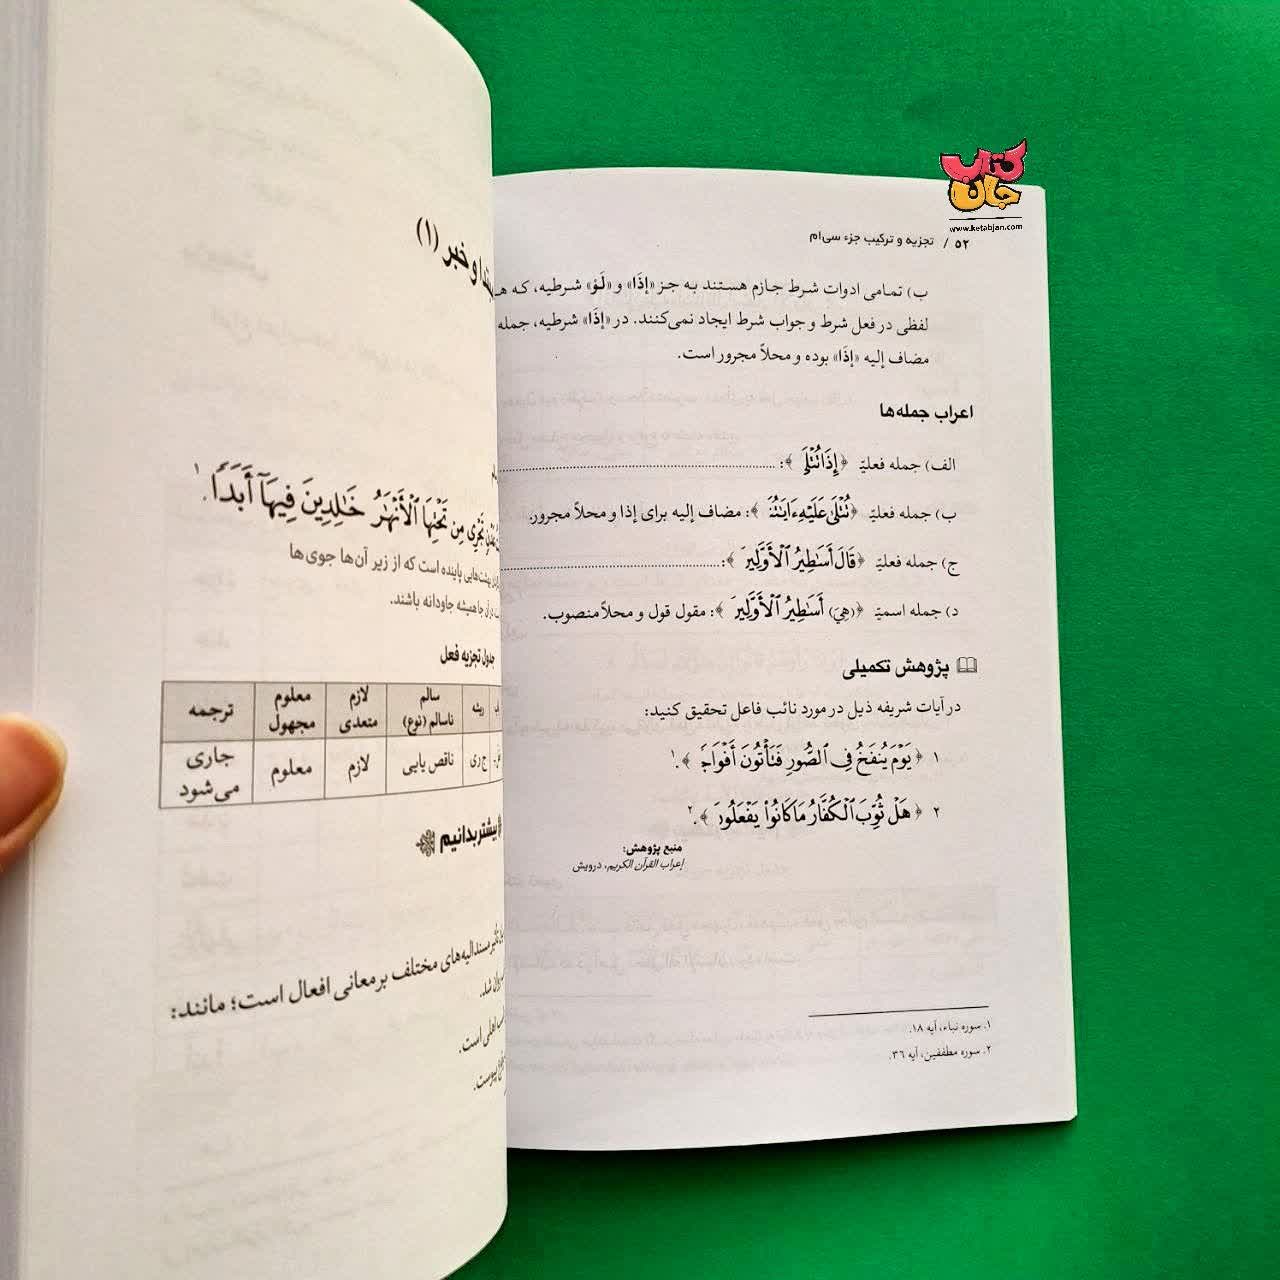 کتاب جان
www.ketabjan.com
۵۲ / تجزیه و ترکیب جزء سی‌ام
ب) تمامی ادوات شرط جازم هستند به جز «إذَا» و «لَوْ» شرطیه، که
لفظی در فعل شرط و جواب شرط ایجاد نمی‌کنند. در «إذَا» شرطیه، جمله
مضاف إلیه «إذَا» بوده و محلاً مجرور است.
اعراب جمله‌ها
الف) جمله فعلیّۀ ﴿إِذَا تُتْلَىٰ﴾: ........................................
ب) جمله فعلیّۀ ﴿تُتْلَىٰ عَلَيْهِ ءَايَٰتُنَا﴾: مضاف إلیه برای إذا و محلاً مجرور.
ج) جمله فعلیّۀ ﴿قَالَ أَسَٰطِيرُ ٱلْأَوَّلِينَ﴾: ........................................
د) جمله اسمیّۀ ﴿(هِيَ) أَسَٰطِيرُ ٱلْأَوَّلِينَ﴾: مقول قول و محلاً منصوب.
پژوهش تکمیلی
در آیات شریفه ذیل در مورد نائب فاعل تحقیق کنید:
۱ ﴿يَوْمَ يُنفَخُ فِي ٱلصُّورِ فَتَأْتُونَ أَفْوَاجًا﴾.۱
۲ ﴿هَلْ ثُوِّبَ ٱلْكُفَّارُ مَا كَانُوا۟ يَفْعَلُونَ﴾.۲
منبع پژوهش:
إعراب القرآن الکریم، درویش
۱. سوره نباء، آیه ۱۸.
۲. سوره مطففین، آیه ۳۶.
و خبر (۱)
تَجْرِي مِن تَحْتِهَا ٱلْأَنْهَٰرُ خَٰلِدِينَ فِيهَآ أَبَدًا.۱
بهشت‌هایی پاینده است که از زیر آن‌ها جوی‌ها
همیشه جاودانه باشند.
جدول تجزیه فعل
ریشه سالم ناسالم (نوع) لازم متعدی معلوم مجهول ترجمه
ج ری ناقص یایی لازم معلوم جاری می‌شود
بیشتر بدانیم
مسندالیه‌های مختلف بر معانی افعال است؛ مانند:
شد.
اهلی است.
پیوست.